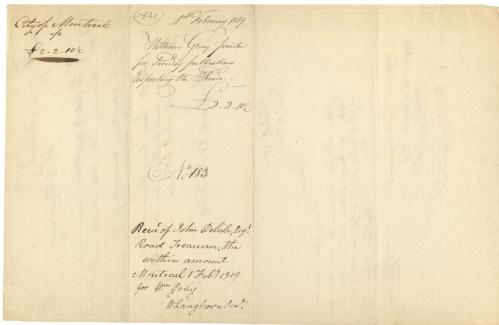 City of Montreal
a/c
£2.2.10½
1721
1st February 1819
William Gray Printer
for Sundry publications
respecting the Roads
£2.2.10½
No. 183
Recd of John Delisle, Esqr
Road Treasurer, the
within amount
Montreal 1 Feby 1819
for Wm Gray
W Langhorn Junr